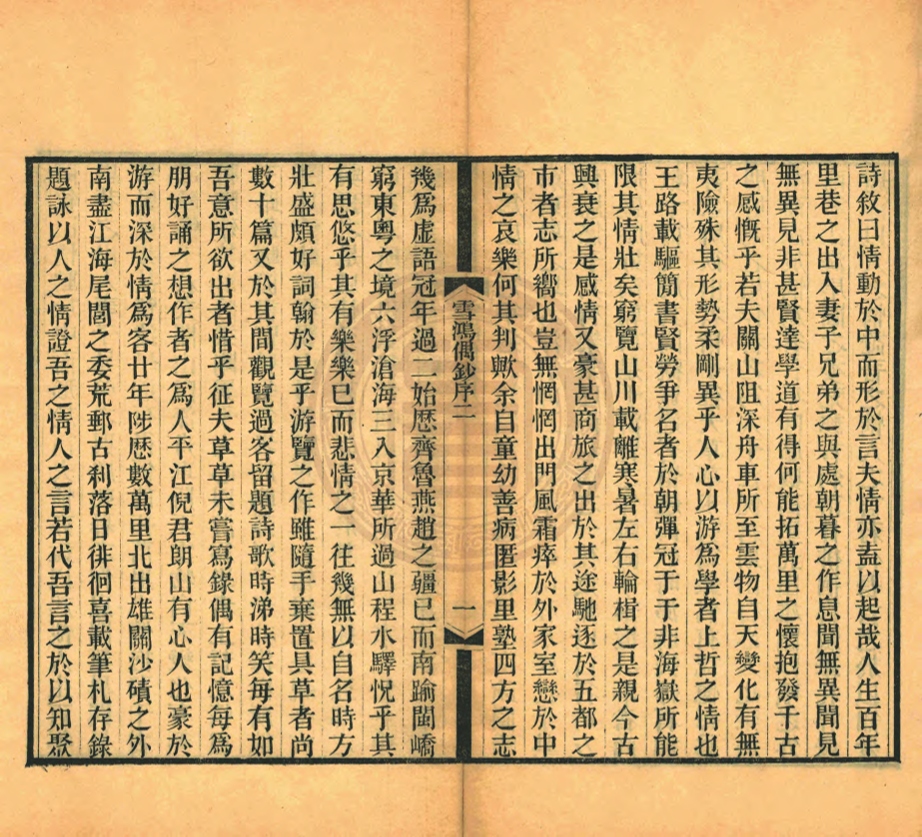 詩敘曰情動於中而形於言夫情亦盍以起哉人生百年
里巷之出入妻子兄弟之與處朝暮之作息聞無異聞見
無異見非甚賢達學道有得何能拓萬里之懷抱發千古
之感慨乎若夫關山阻深舟車所至雲物自天變化有無
夷險殊其形勢柔剛異乎人心以游為學者上哲之情也
王路載驅簡書賢勞爭名者於朝彈冠于于非海嶽所能
限其情壯矣窮覽山川載離寒暑左右輪楫之是親今古
興衰之是感情又豪甚商旅之出於其途馳逐於五都之
市者志所嚮也豈無惘惘出門風霜瘁於外家室戀於中
情之哀樂何其判歟余自童幼善病匿影里塾四方之志
雪鴻偶鈔序二
一
幾為虛語冠年過二始歷齊魯燕趙之疆已而南踰閩嶠
窮東粵之境六浮滄海三入京華所過山程水驛怳乎其
有思悠乎其有樂樂已而悲情之一往幾無以自名時方
壯盛頗好詞翰於是乎游覽之作雖隨手棄置具草者尚
數十篇又於其間觀覽過客留題詩歌時涕時笑每有如
吾意所欲出者惜乎征夫草草未嘗寫錄偶有記憶每為
朋好誦之想作者之為人平江倪君朗山有心人也豪於
游而深於情為客廿年陟歷數萬里北出雄關沙磧之外
南盡江海尾閭之委荒郵古刹落日徘徊喜載筆札存錄
題詠以人之情證吾之情人之言若代吾言之於以知聚